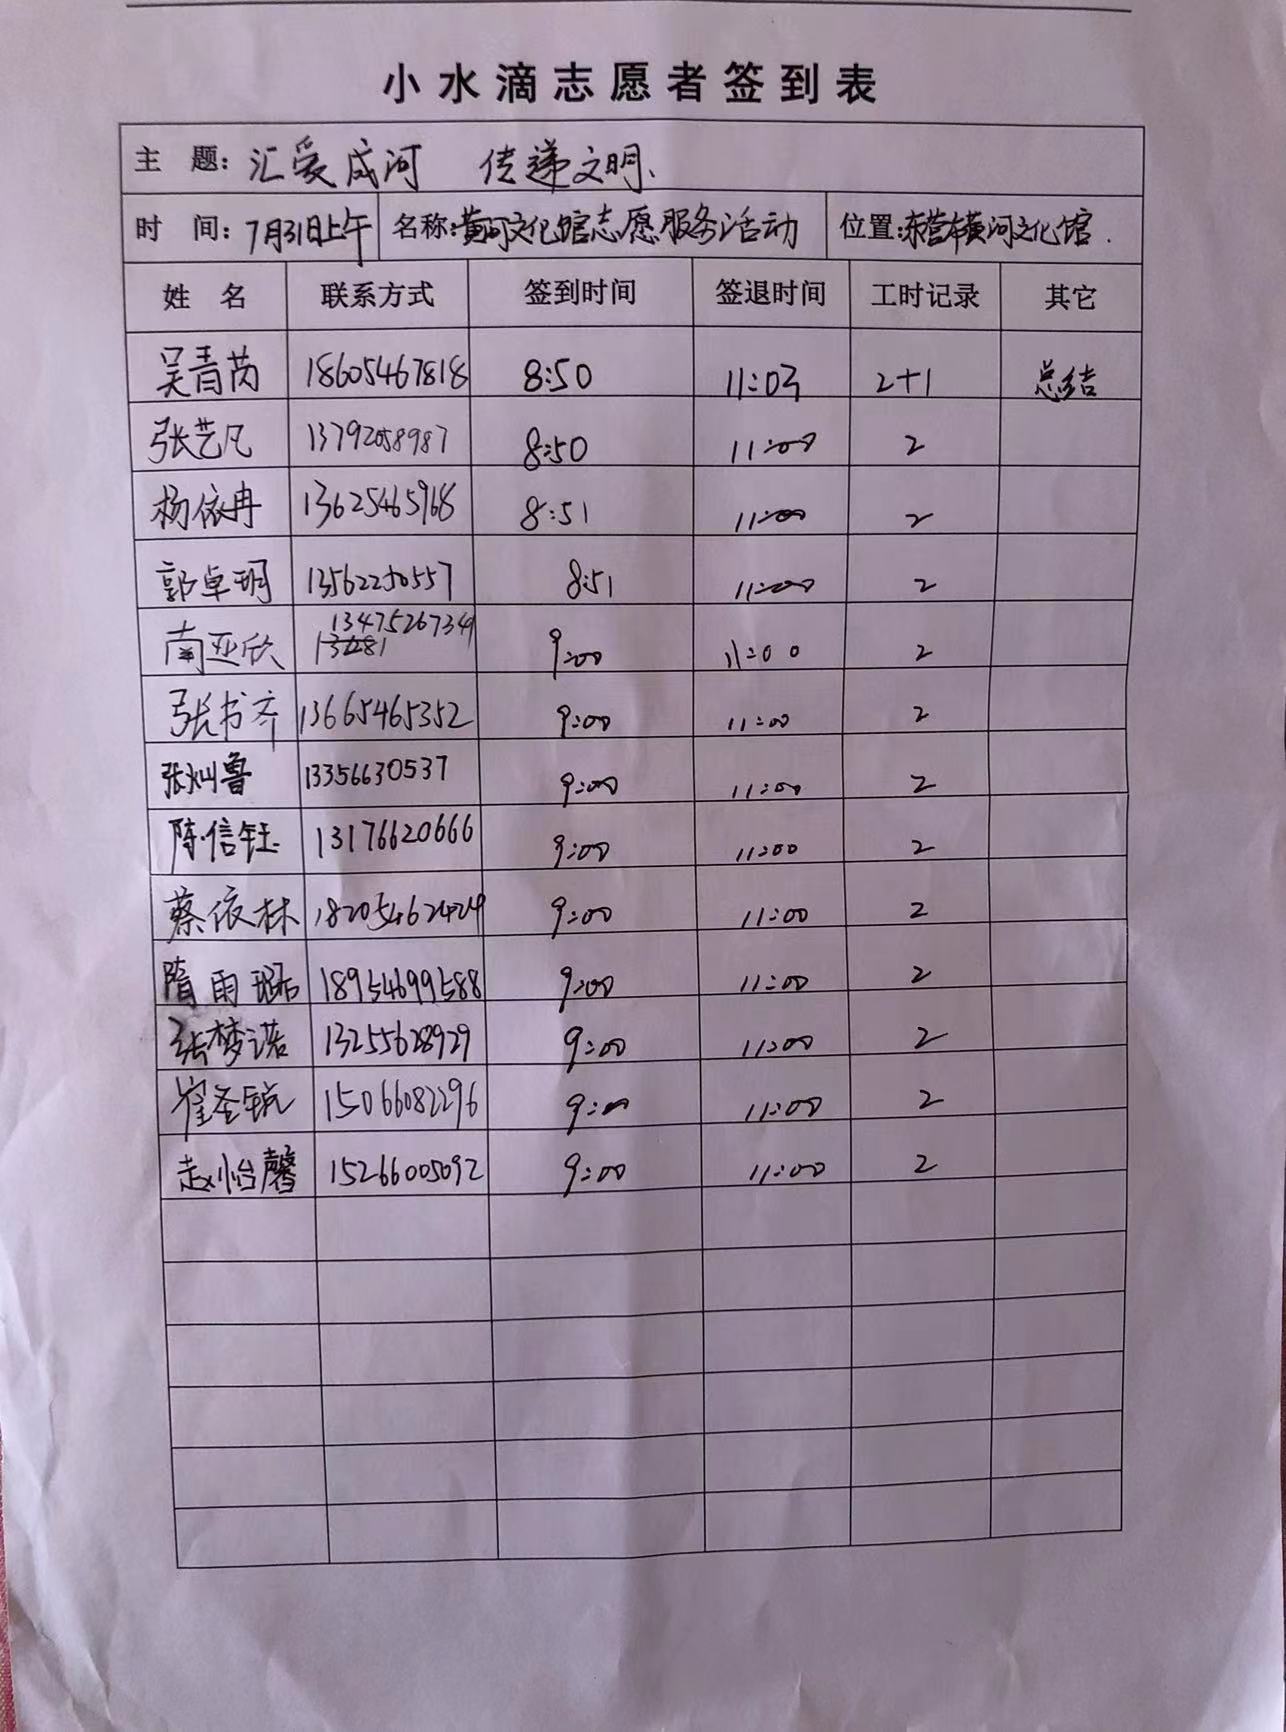 小水滴志愿者签到表
主 题：汇爱成河 传递文明、
时 间：7月31日上午 名称：黄河文化馆志愿服务活动 位置：东营市黄河文化馆.
姓 名 联系方式 签到时间 签退时间 工时记录 其它
吴青芮 18605467818 8:50 11:03 2+1 总结
张艺凡 13792058987 8:50 11:00 2
杨依冉 13625465968 8:51 11:00 2
郭卓玥 13562250557 8:51 11:00 2
南亚欣 13475267349 9:00 11:00 2
张书齐 13665465352 9:00 11:00 2
张灿鲁 13356630537 9:00 11:00 2
陈信钰 13176620666 9:00 11:00 2
蔡依林 18205462424 9:00 11:00 2
隋雨璐 18954699588 9:00 11:00 2
张梦诺 13255628929 9:00 11:00 2
崔圣航 15066082296 9:00 11:00 2
赵怡馨 15266005092 9:00 11:00 2